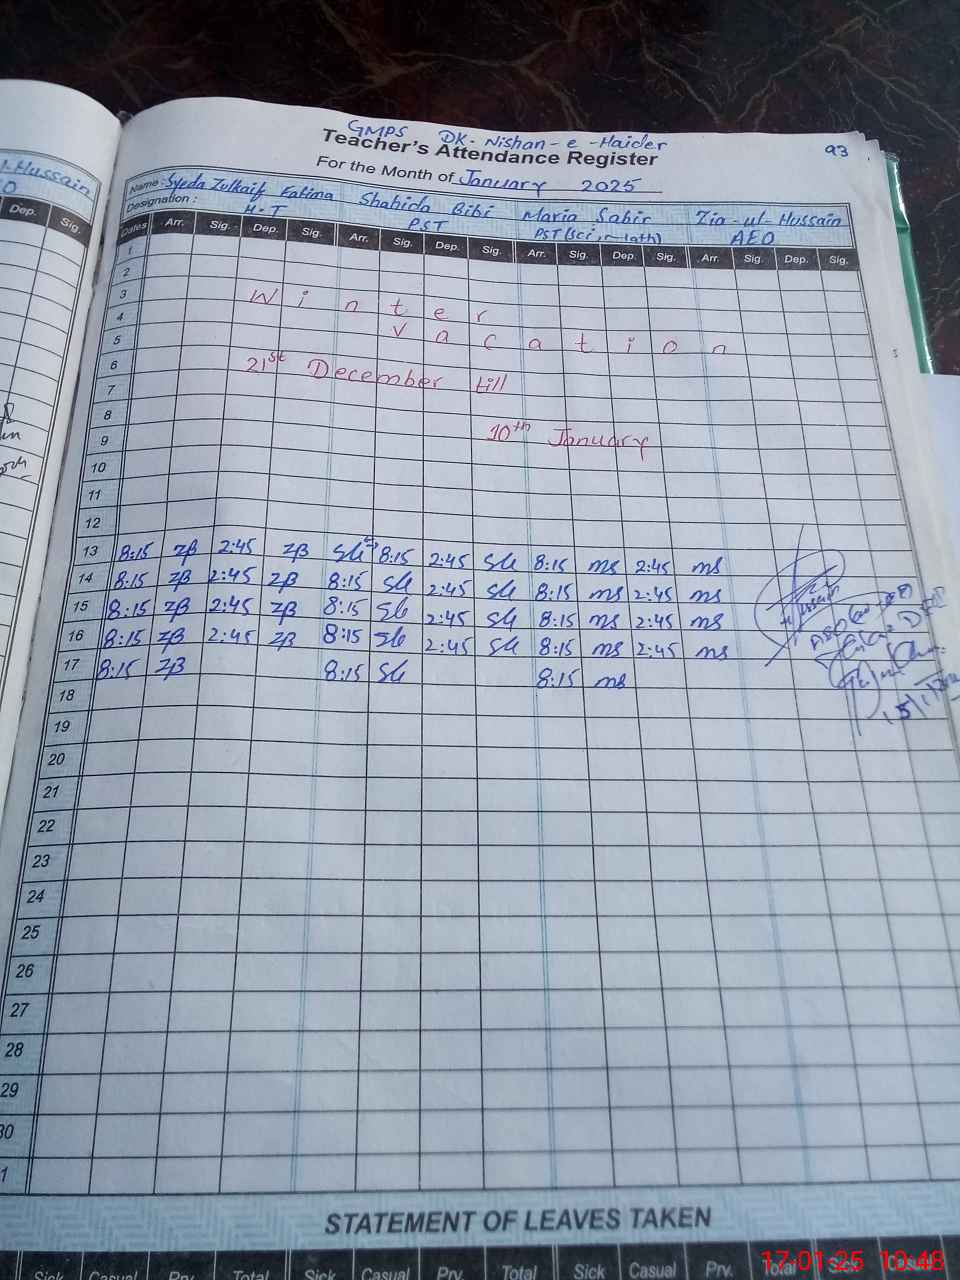 GMPS DK-Nishan-e-Haider
93
Teacher's Attendance Register
For the Month of January 2025
Hussain
Name: Syeda Zulkaif Fatima Shahida Bibi Maria Sabir Zia-ul-Hussain
Designation: H.T PST PST (Sci, math) AEO
Dep. Sig.
Dates Arr. Sig. Dep. Sig. Arr. Sig. Dep. Sig. Arr. Sig. Dep. Sig. Arr. Sig. Dep. Sig.
1
2
3 Winter
4
5 Vacation
6 21st December till
7
8
9 10th January
10
11
12
13 8:15 ZB 2:45 ZB 8:15 2:45 8:15 ms 2:45 ms
14 8:15 ZB 2:45 ZB 8:15 2:45 8:15 ms 2:45 ms
15 8:15 ZB 2:45 ZB 8:15 2:45 8:15 ms 2:45 ms
16 8:15 ZB 2:45 ZB 8:15 2:45 8:15 ms 2:45 ms
17 8:15 ZB 8:15 8:15 ms
18
19
20
21
22
23
24
25
26
27
28
29
30
1
STATEMENT OF LEAVES TAKEN
Sick Casual Prv. Total Sick Casual Prv. Total Sick Casual Prv. Total Sick Casual
17.01.25 10:48